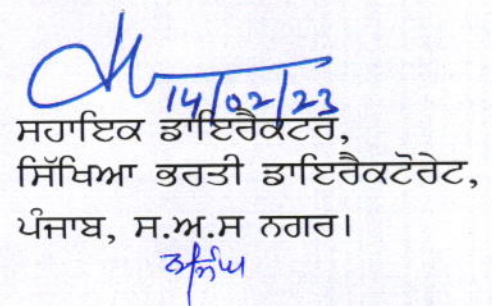 14/02/23
ਸਹਾਇਕ ਡਾਇਰੈਕਟਰ,
ਸਿੱਖਿਆ ਭਰਤੀ ਡਾਇਰੈਕਟੋਰੇਟ,
ਪੰਜਾਬ, ਸ.ਅ.ਸ ਨਗਰ।